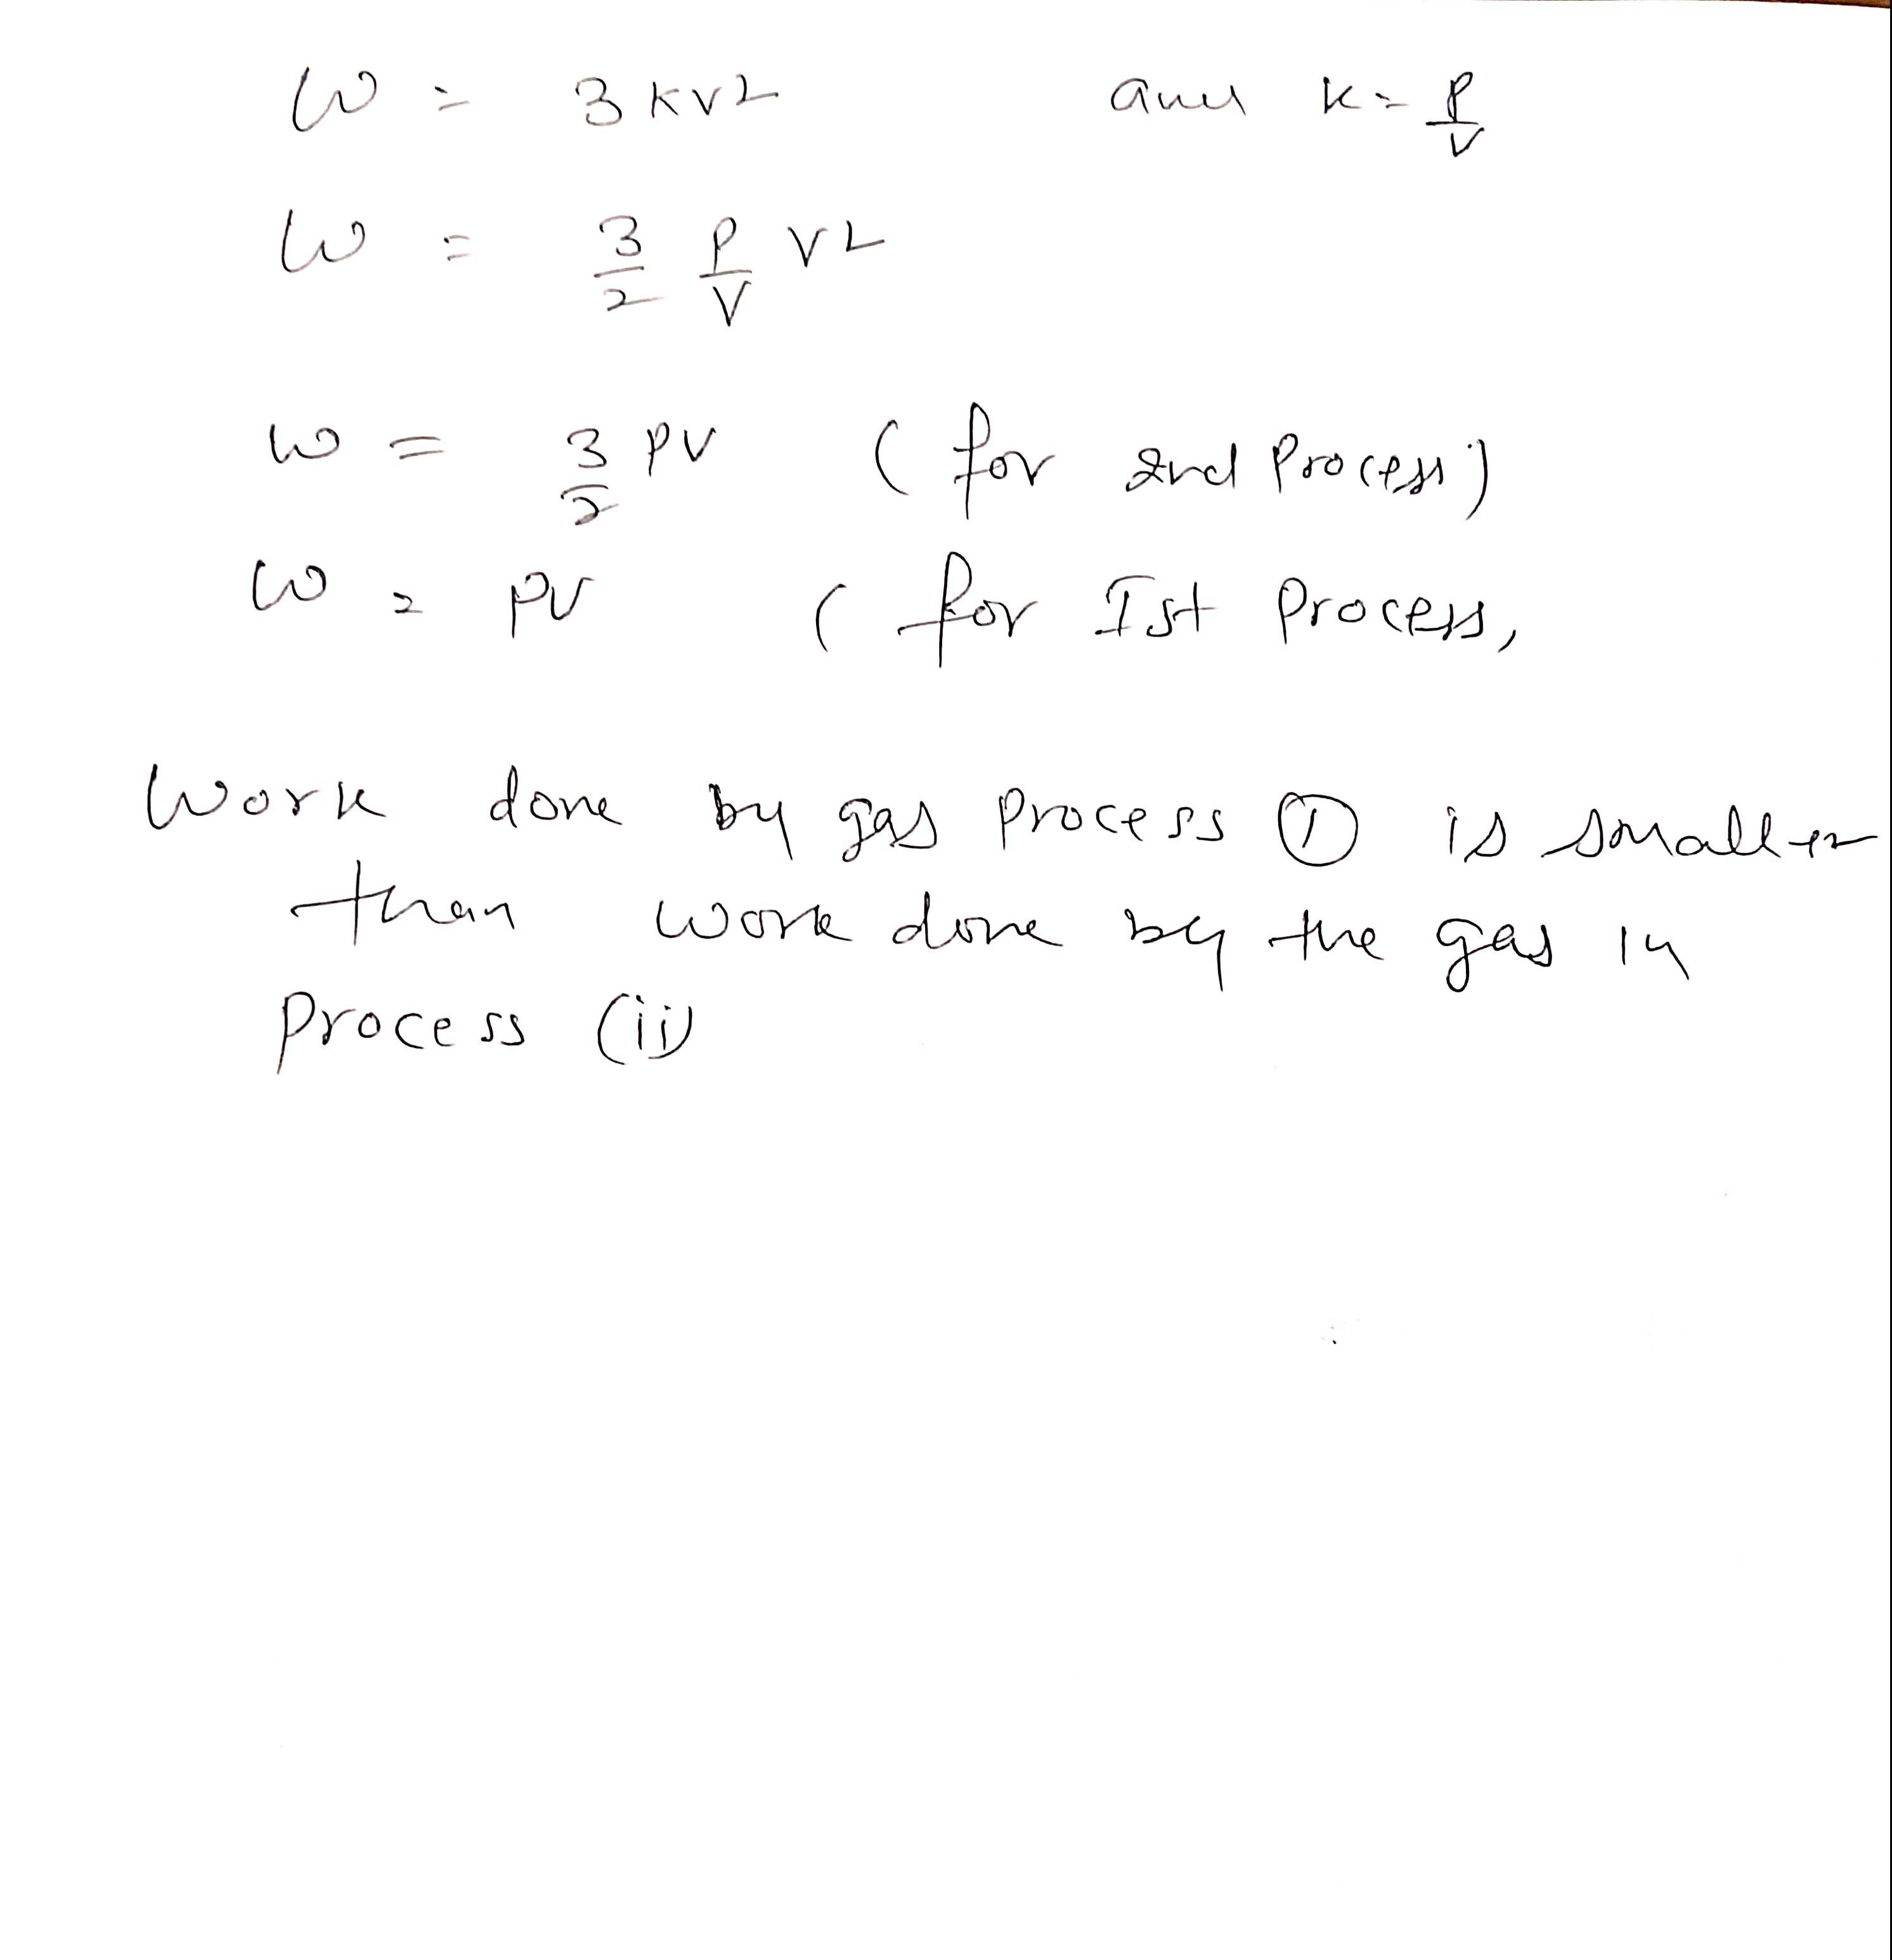 W = 3 K V2 and K = P/V
W = 3/2 P/V V2
W = 3/2 PV ( for 2nd Process)
W = PV ( for Ist Process,
Work done by gas Process ① is smaller
than work done by the gas in
Process (ii)